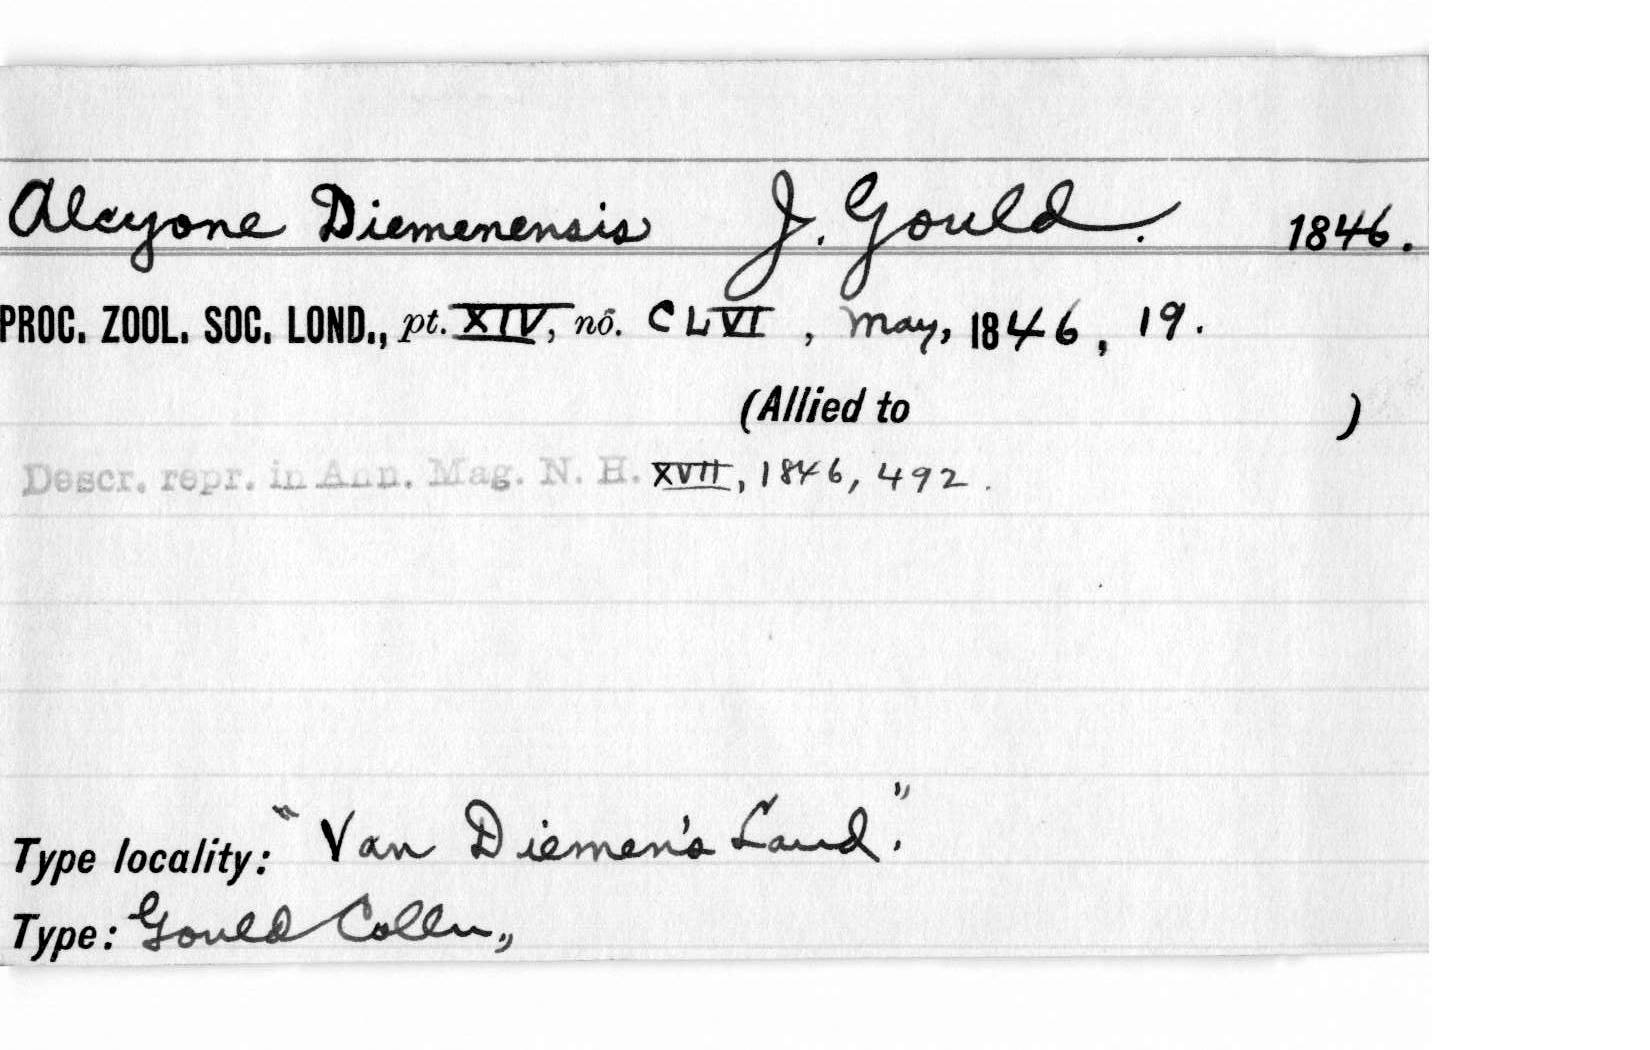 Alcyone Diemenensis J. Gould. 1846.
PROC. ZOOL. SOC. LOND., pt. XIV, no. CLVI, May, 1846, 19.
(Allied to )
Descr. repr. in Ann. Mag. N. H. XVII, 1846, 492.
Type locality: "Van Diemen's Land".
Type: Gould Colln.,